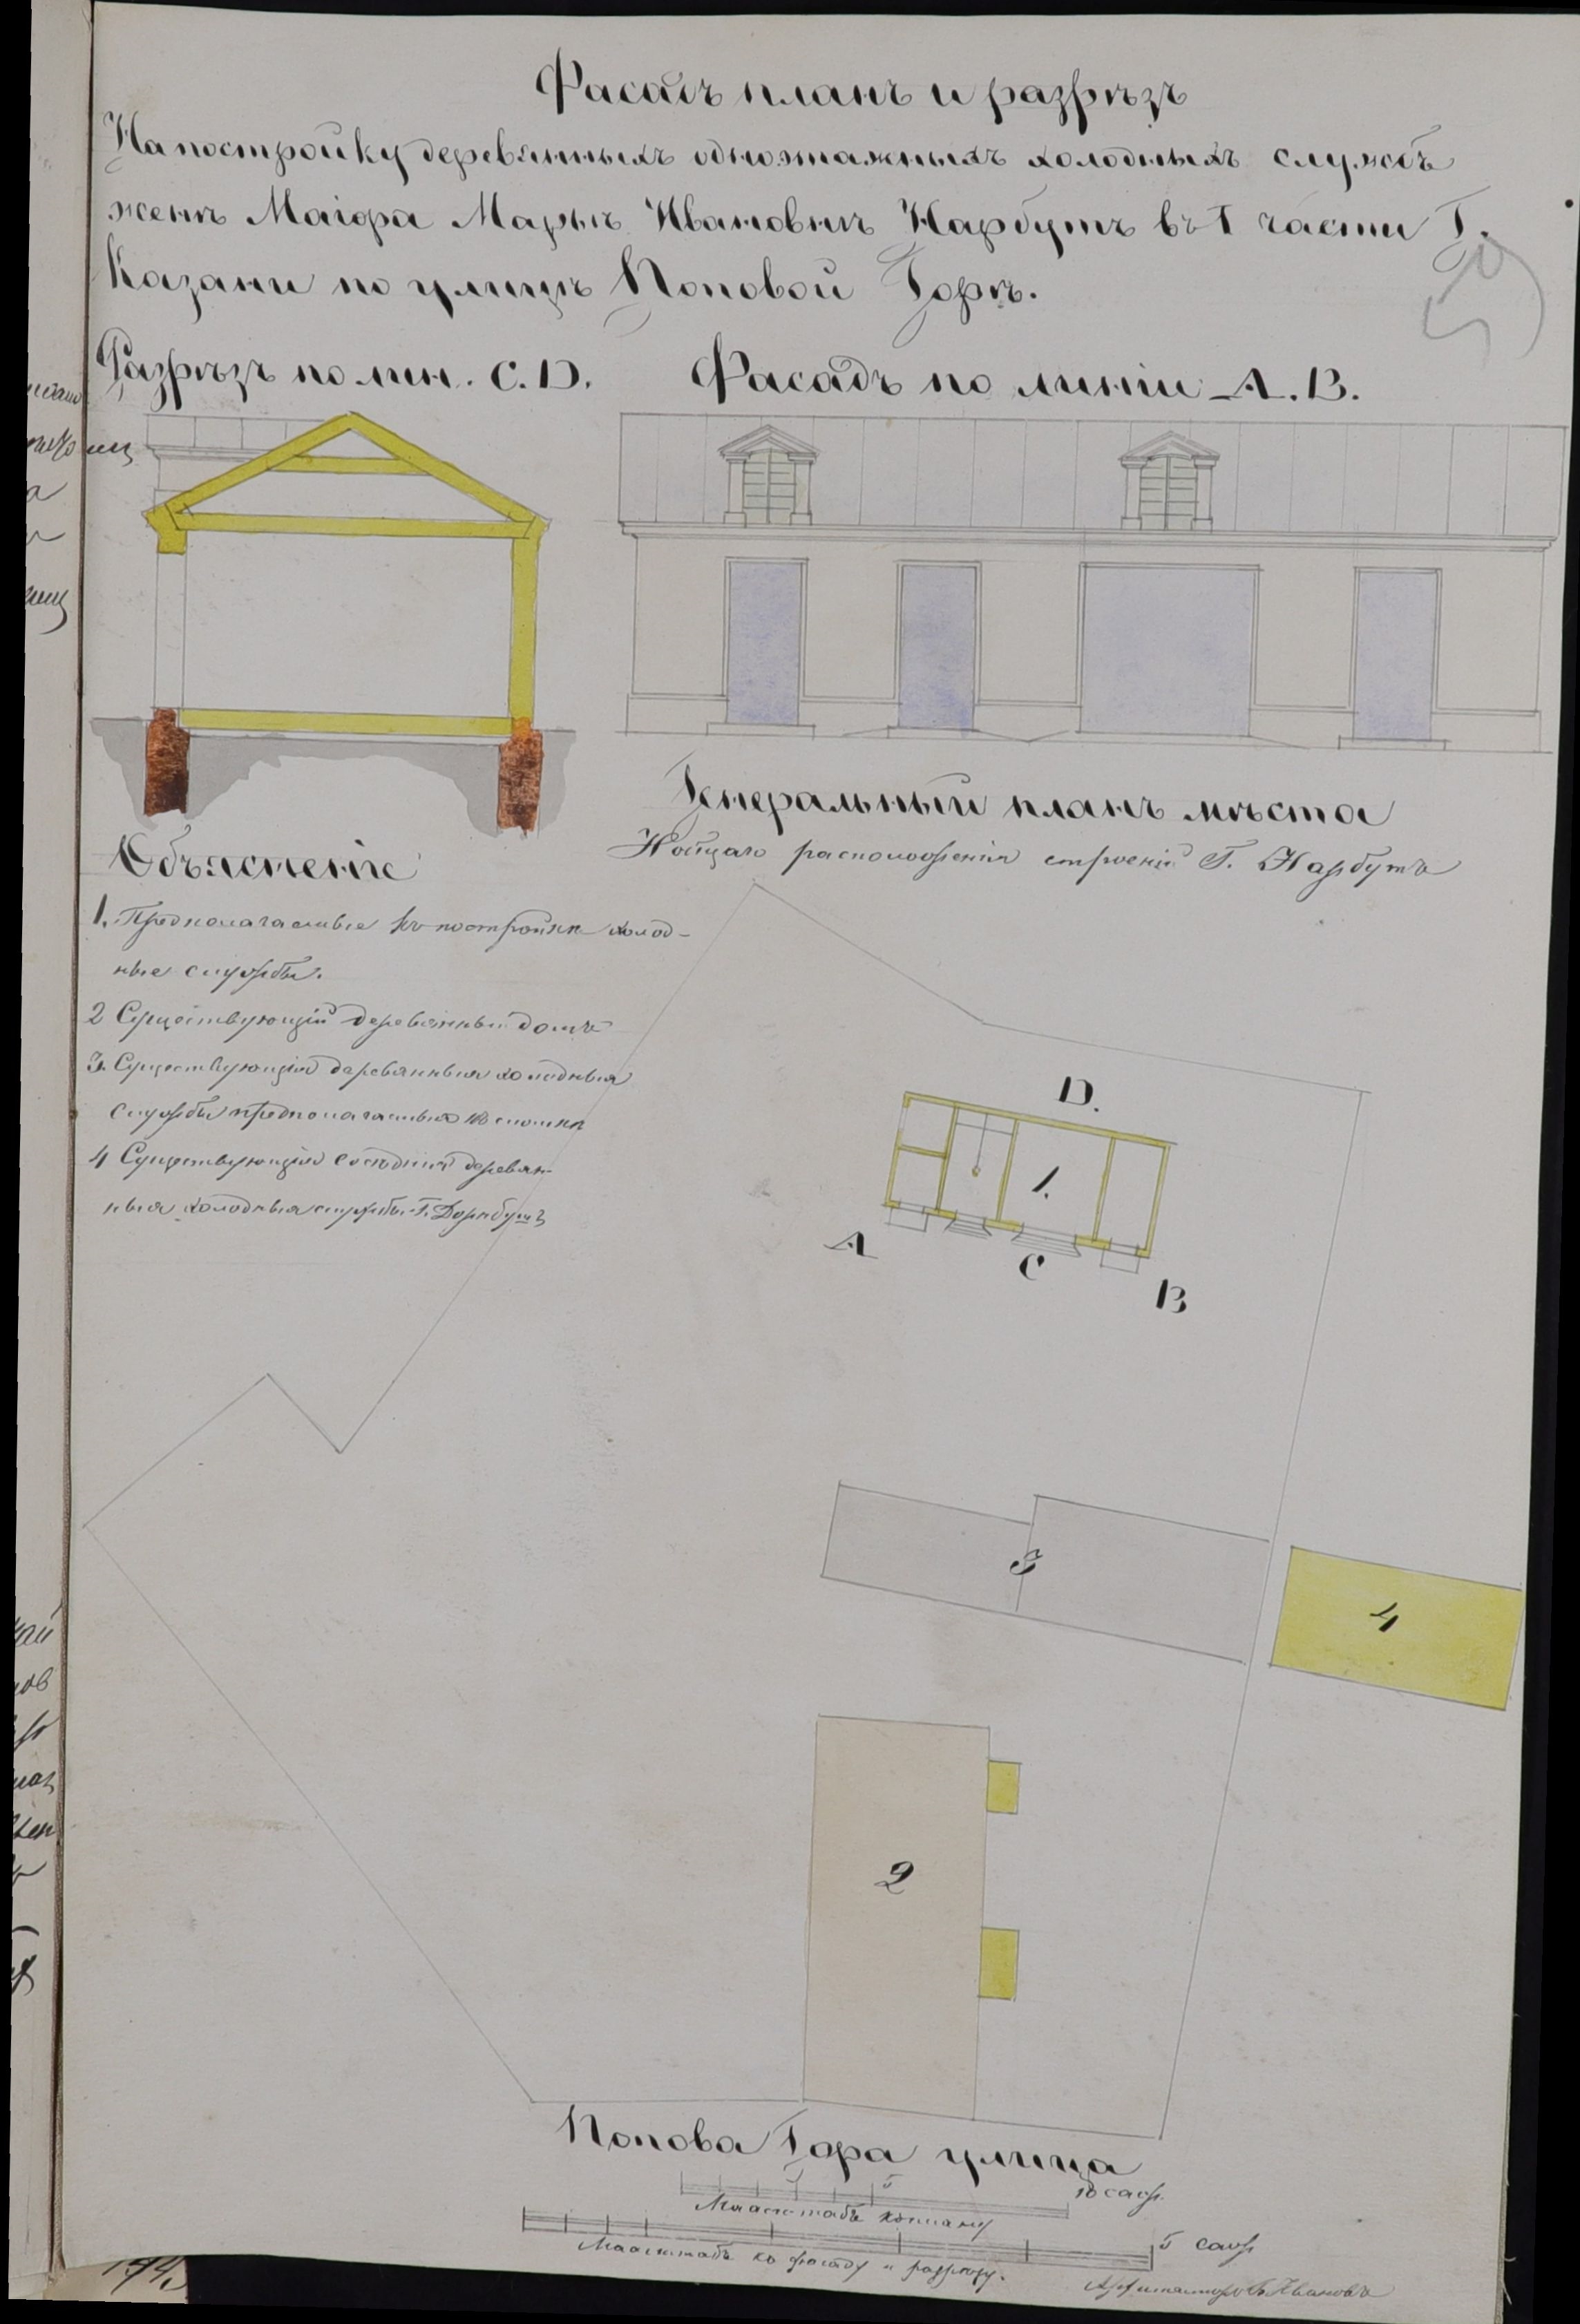 Фасадъ планъ и разрѣзъ
На постройку деревянныхъ одноэтажныхъ холодныхъ службъ
женѣ Маіора Марьѣ Ивановнѣ Нарбутъ въ 1 части Г.
Казани по улицѣ Поповой Горѣ.
Разрѣзъ по лин. C. D.
Фасадъ по линіи A. B.
Генеральный планъ мѣста
расположенія строеній Г. Нарбутъ
Объясненіе
1. Предполагаемые къ постройкѣ холод-
ные службы.
2 Существующій деревянный домъ
3. Существующія деревянныя холодныя
службы предполагаемыя къ сломкѣ
4 Существующія сосѣднія деревян-
ныя холодныя службы Г.
D.
1.
A
C
B
3
4
2
Попова Гора улица
5
10 саж.
Масштабъ къ плану
5 саж
Масштабъ къ фасаду и разрѣзу.
Архитекторъ Ивановъ